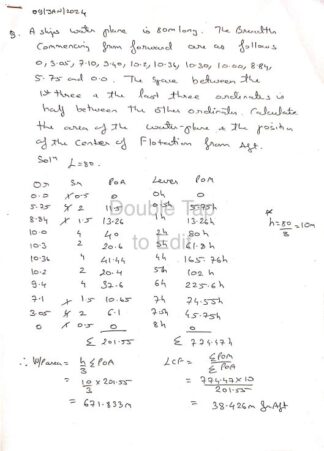 09/JAN/2024
Q. A ships water plane is 80m long. The Breadths
Commencing from forward are as follows
0, 3.05, 7.10, 9.40, 10.2, 10.36, 10.30, 10.00, 8.84,
5.75 and 0.0. The space between the
1st three & the last three ordinates is
half between the other ordinates. Calculate
the area of the water-plane & the position
of the center of Flotation from Aft.
Sol^n L=80.
Or SM POA Lever POM
0.0 x 0.5 0 0h 0
5.75 x 2 11.5 0.5h 5.75h
8.84 x 1.5 13.26 1h 13.26h
10.0 4 40 2h 80h
10.3 2 20.6 3h 61.8h
10.36 4 41.44 4h 165.76h
10.2 2 20.4 5h 102h
9.4 4 37.6 6h 225.6h
7.1 x 1.5 10.65 7h 74.55h
3.05 x 2 6.1 7.5h 45.75h
0 x 0.5 0 8h 0
Σ 201.55 Σ 774.47h
* h = 80/8 = 10m
Double Tap
to Edit
∴ W/P area = h/3 Σ POA
= 10/3 x 201.55
= 671.833m
LCF = Σ POM / Σ POA
= 774.47 x 10 / 201.55
= 38.426m fm Aft